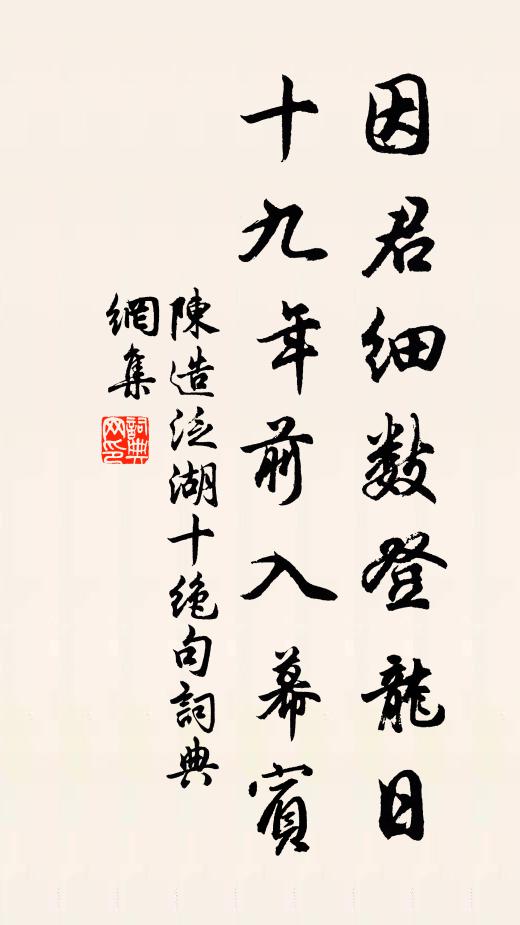 因君細數登龍日
十九年前入幕賓
陳造泛湖十絶句詞典
網集
詞典
网印